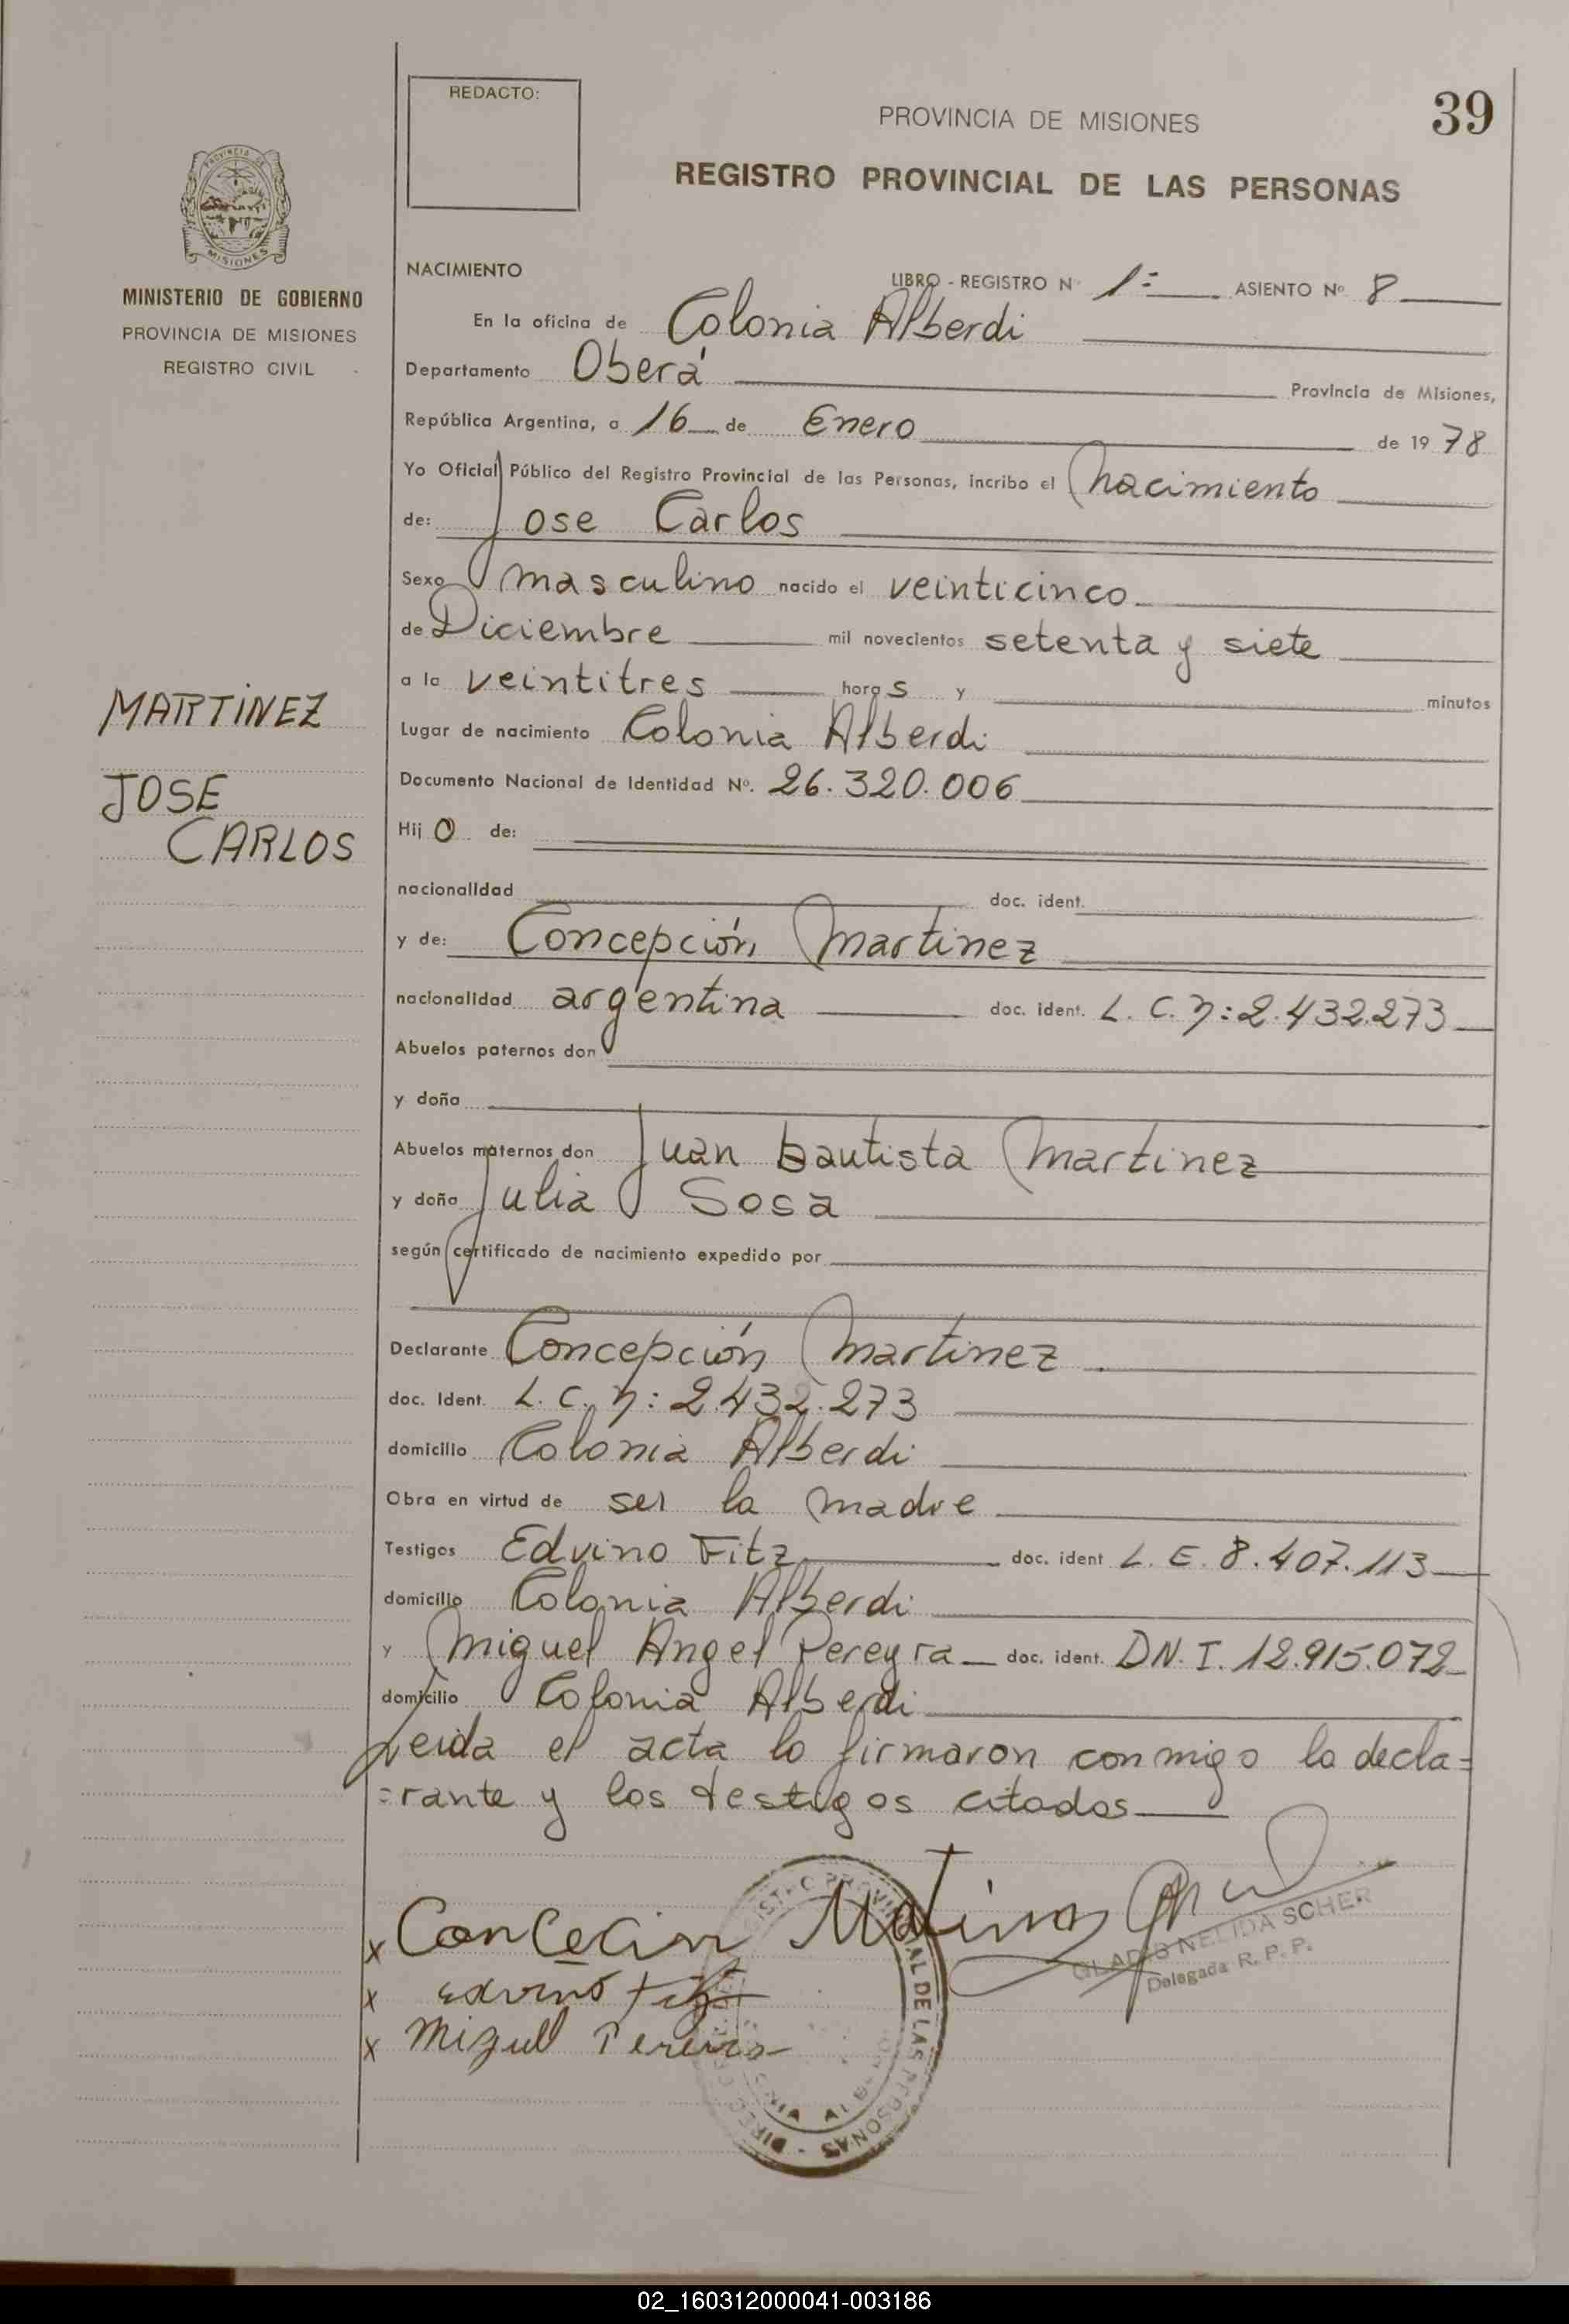 REDACTO:
PROVINCIA DE MISIONES
39
REGISTRO PROVINCIAL DE LAS PERSONAS
MISIONES
MINISTERIO DE GOBIERNO
PROVINCIA DE MISIONES
REGISTRO CIVIL
NACIMIENTO
LIBRO - REGISTRO Nº 1= ASIENTO Nº 8
En la oficina de Colonia Alberdi
Departamento Oberá Provincia de Misiones,
República Argentina, a 16 de Enero de 1978
Yo Oficial Público del Registro Provincial de las Personas, incribo el nacimiento
de: Jose Carlos
Sexo masculino nacido el veinticinco
de Diciembre mil novecientos setenta y siete
a la veintitres horas y minutos
MARTINEZ
Lugar de nacimiento Colonia Alberdi
JOSE
Documento Nacional de Identidad Nº. 26.320.006
CARLOS
Hijo de:
nacionalidad doc. ident.
y de: Concepción Martinez
nacionalidad argentina doc. ident. L. C. n: 2.432.273
Abuelos paternos don
y doña
Abuelos maternos don Juan bautista Martinez
y doña Julia Sosa
según certificado de nacimiento expedido por
Declarante Concepción Martinez
doc. Ident. L. C. n: 2.432.273
domicilio Colonia Alberdi
Obra en virtud de ser la madre
Testigos Edvino Fitz doc. ident L. E. 8.407.113
domicilio Colonia Alberdi
y Miguel Angel Pereyra doc. ident. DN.I. 12.915.072
domicilio Colonia Alberdi
Leida el acta lo firmaron conmigo la decla=
=rante y los testigos citados
x
GLADIS NELIDA SCHER
Delegada R. P. P.
x
x
DE LAS PERSONAS
02_160312000041-003186